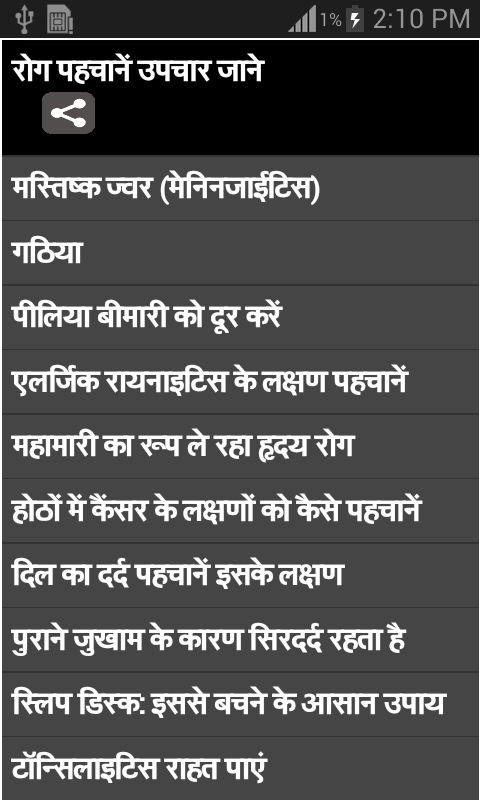 1% 2:10 PM
रोग पहचानें उपचार जाने
मस्तिष्क ज्वर (मेनिनजाईटिस)
गठिया
पीलिया बीमारी को दूर करें
एलर्जिक रायनाइटिस के लक्षण पहचानें
महामारी का रूप ले रहा हृदय रोग
होठों में कैंसर के लक्षणों को कैसे पहचानें
दिल का दर्द पहचानें इसके लक्षण
पुराने जुखाम के कारण सिरदर्द रहता है
स्लिप डिस्क: इससे बचने के आसान उपाय
टॉन्सिलाइटिस राहत पाएं